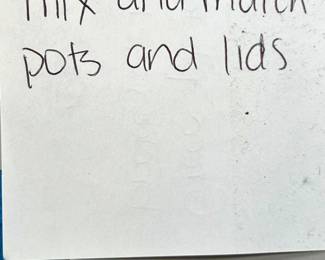 mix and match
pots and lids